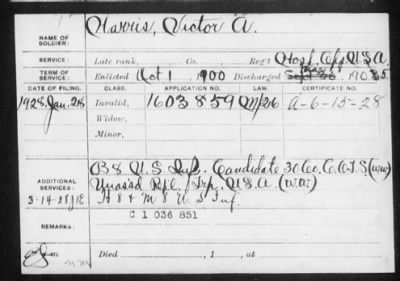 NAME OF SOLDIER: Harris, Victor A.
SERVICE: Late rank, Co. Reg't Hosp. Cps U.S.A.
TERM OF SERVICE: Enlisted Oct 1 1900 Discharged 190
DATE OF FILING. CLASS. APPLICATION NO. LAW. CERTIFICATE NO.
1928. Jan. 28 Invalid, 1603859 A-6-15-28
Widow,
Minor,
ADDITIONAL SERVICES: B 8 U.S. Inf. Candidate 30 Co. C.O.T.S (ww)
Unas'd Rpl. Trp. U.S.A. (W.W.)
3-14-28 H 8 & M 8 U S Inf.
C 1 036 851
REMARKS:
Died , 1 , at